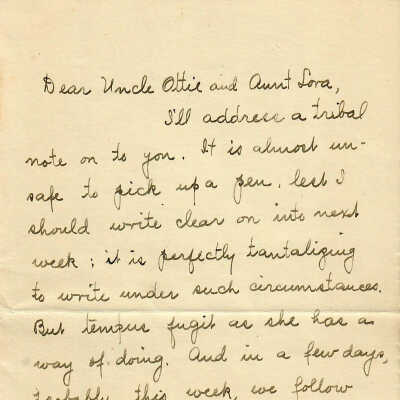 Dear Uncle Ottie and Aunt Lora,
I'll address a tribal
note on to you. It is almost un-
safe to pick up a pen, lest I
should write clear on into next
week; it is perfectly tantalizing
to write under such circumstances.
But tempus fugit as she has a
way of doing. And in a few days,
probably this week, we follow